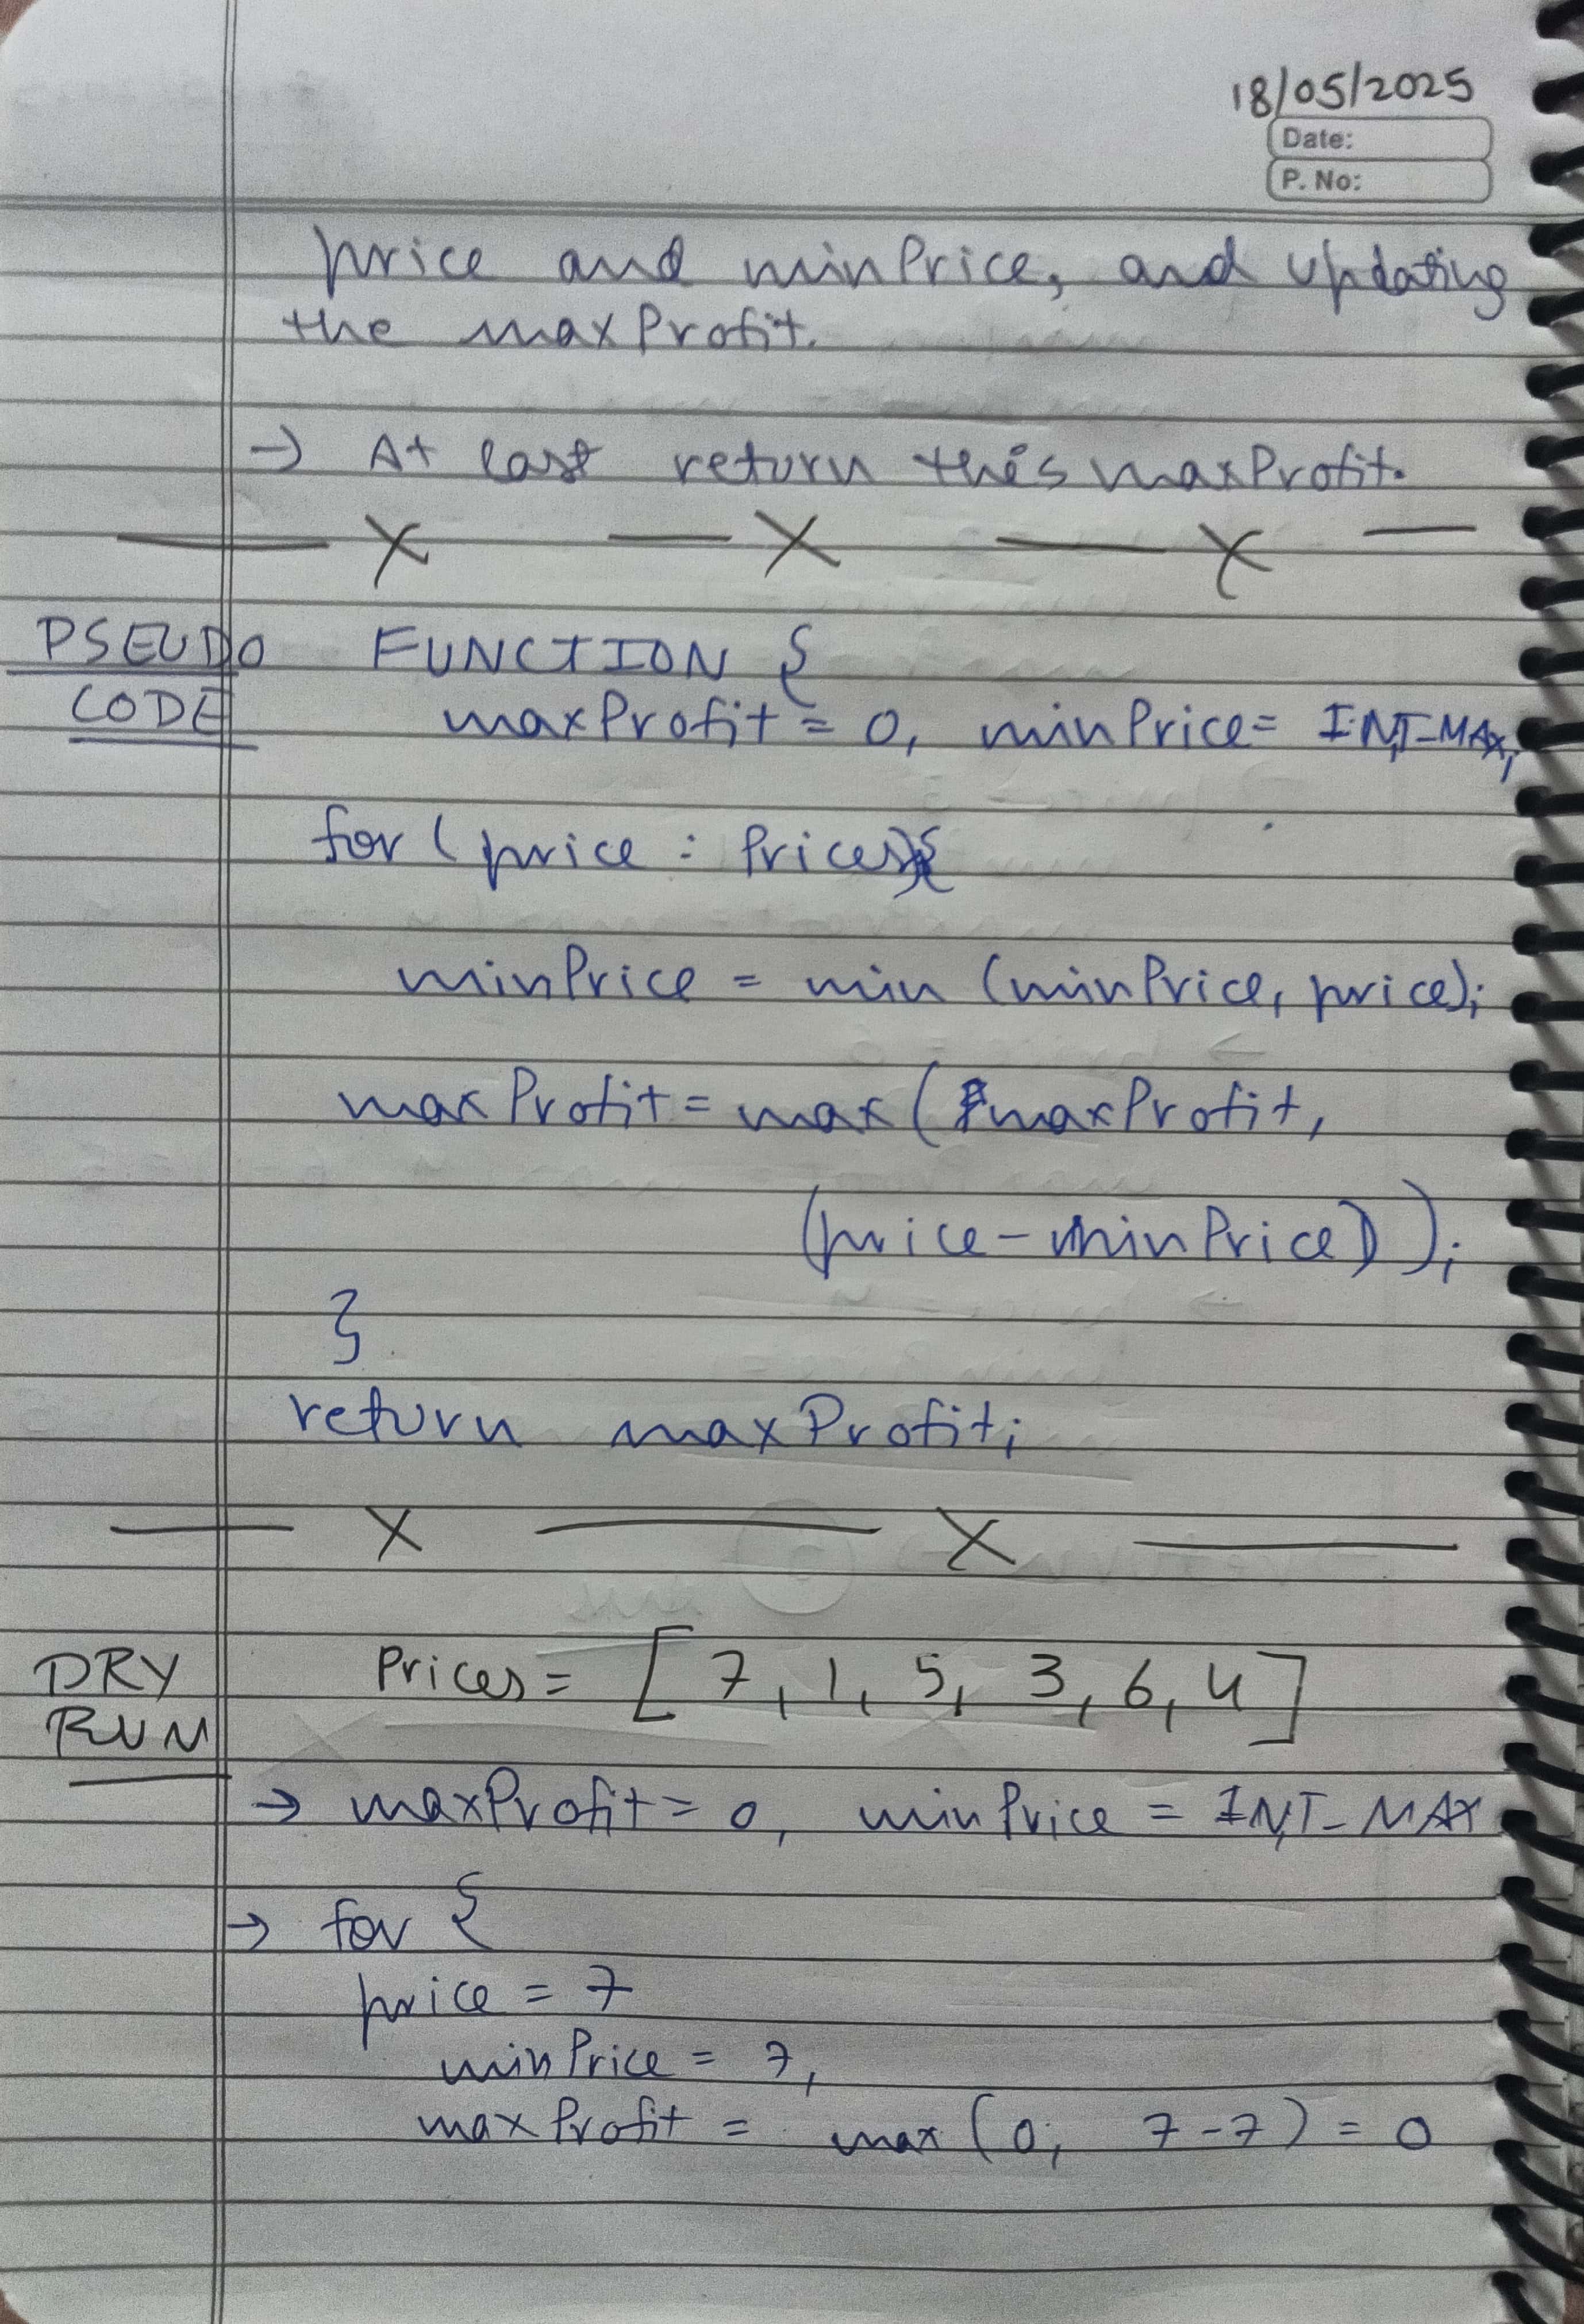 18/05/2025
Date:
P. No:
price and minPrice, and updating
the maxProfit.
→ At last return this maxProfit.
PSEUDO FUNCTION {
CODE maxProfit = 0, minPrice = INT_MAX,
for (price : Prices){
minPrice = min (minPrice, price);
maxProfit = max (maxProfit,
(price - minPrice));
}
return maxProfit;
DRY Prices = [7, 1, 5, 3, 6, 4]
RUN
→ maxProfit = 0, minPrice = INT_MAX
→ for {
price = 7
minPrice = 7,
maxProfit = max (0, 7-7) = 0